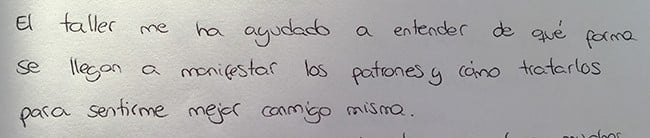 El taller me ha ayudado a entender de qué forma
se llegan a manifestar los patrones y cómo tratarlos
para sentirme mejor conmigo misma.